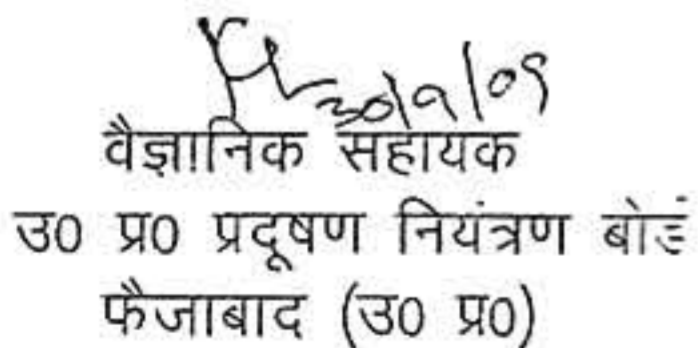 30/9/09
वैज्ञानिक सहायक
उ0 प्र0 प्रदूषण नियंत्रण बोर्ड
फैजाबाद (उ0 प्र0)